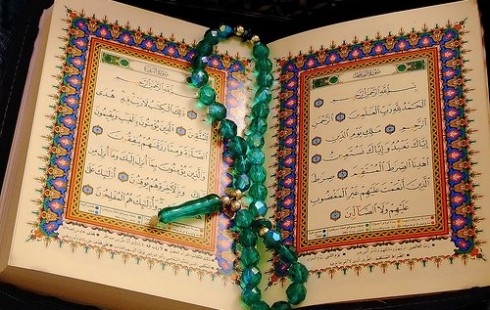 سُورَةُ الفَاتِحَة
بِسْمِ اللَّهِ الرَّحْمَٰنِ الرَّحِيمِ
الْحَمْدُ لِلَّهِ رَبِّ الْعَٰلَمِينَ الرَّحْمَٰنِ
الرَّحِيمِ مَٰلِكِ يَوْمِ الدِّينِ
إِيَّاكَ نَعْبُدُ وَإِيَّاكَ نَسْتَعِينُ
اهْدِنَا الصِّرَٰطَ الْمُسْتَقِيمَ صِرَٰطَ
الَّذِينَ أَنْعَمْتَ عَلَيْهِمْ غَيْرِ الْمَغْضُوبِ
عَلَيْهِمْ وَلَا الضَّالِّينَ
سُورَةُ البَقَرَة
بِسْمِ اللَّهِ الرَّحْمَٰنِ الرَّحِيمِ
ذَٰلِكَ الْكِتَٰبُ لَا رَيْبَ فِيهِ هُدًى
لِلْمُتَّقِينَ الَّذِينَ يُؤْمِنُونَ بِالْغَيْبِ وَيُقِيمُونَ
الصَّلَوٰةَ وَمِمَّا رَزَقْنَٰهُمْ يُنْفِقُونَ
وَالَّذِينَ يُؤْمِنُونَ بِمَا أُنْزِلَ إِلَيْكَ وَمَا أُنْزِلَ مِنْ
قَبْلِكَ وَبِالْآخِرَةِ هُمْ يُوقِنُونَ أُولَٰئِكَ عَلَىٰ
هُدًى مِنْ رَبِّهِمْ وَأُولَٰئِكَ هُمُ الْمُفْلِحُونَ